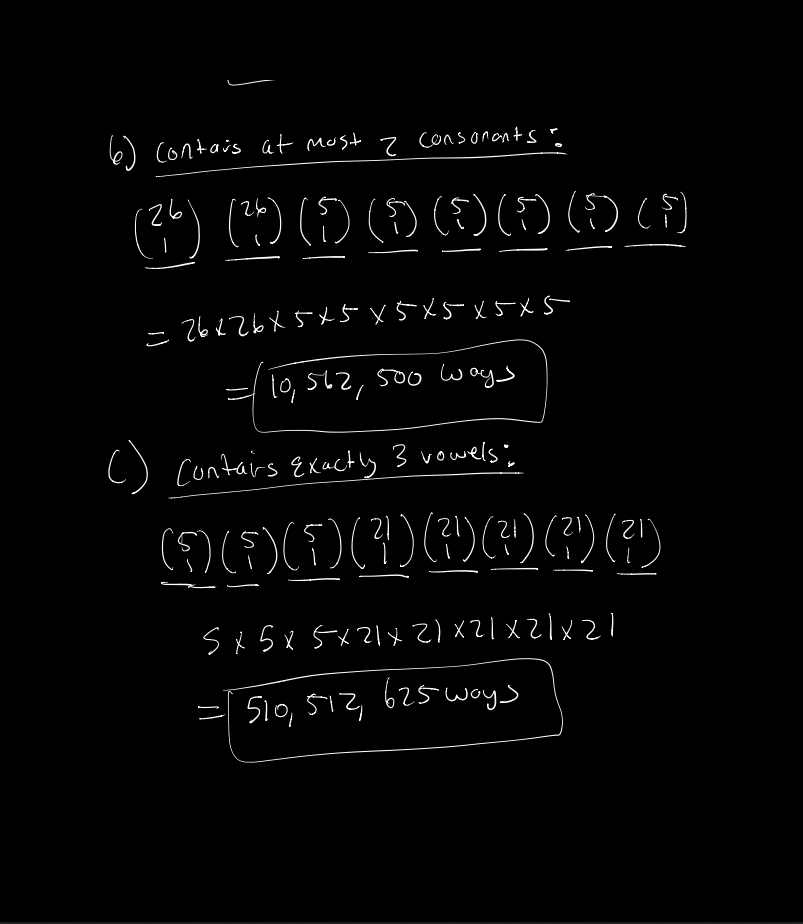 b) Contais at most 2 consonants:
(26 1) (26 1) (5 1) (5 1) (5 1) (5 1) (5 1) (5 1)
= 26x26x5x5x5x5x5x5
= 10,562,500 ways
C) Contairs exactly 3 vowels:
(5 1)(5 1)(5 1)(21 1)(21 1)(21 1)(21 1)(21 1)
5x5x5x21x21x21x21x21
= 510,512,625 ways